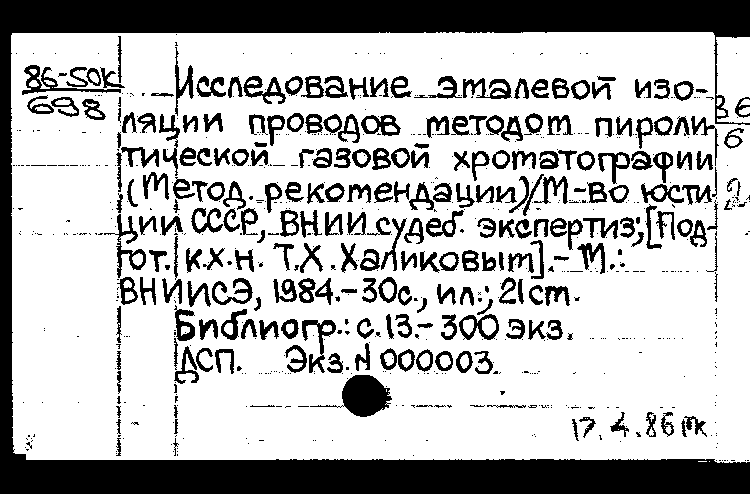 86-50к
698
Исследование эмалевой изо-
ляции проводов методом пироли-
тической газовой хроматографии
:(Метод. рекомендации)/М-во юсти
ции СССР, ВНИИ судеб. экспертиз;[Под-
гот. к.х.н. Т.Х.Халиковым].- М.:
ВНИИСЭ, 1984.-30с., ил.; 21см.
Библиогр.: с.13.- 300 экз.
ДСП. Экз.N 000003.
17.4.86